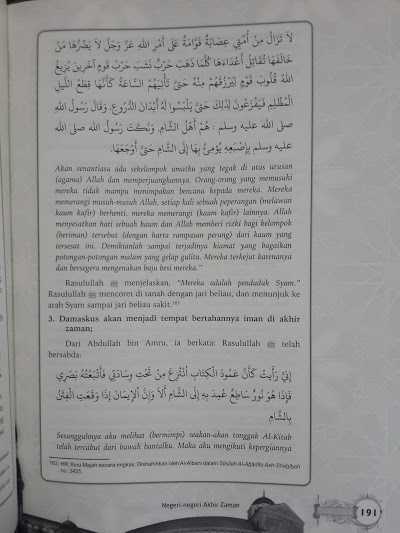 لَا تَزَالُ مِنْ أُمَّتِي عِصَابَةٌ قَوَّامَةٌ عَلَى أَمْرِ اللهِ عَزَّ وَجَلَّ لَا يَضُرُّهَا مَنْ
خَالَفَهَا تُقَاتِلُ أَعْدَاءَهَا كُلَّمَا ذَهَبَ حَرْبٌ نَشَبَ حَرْبُ قَوْمٍ آخَرِينَ يُزِيغُ
اللهُ قُلُوبَ قَوْمٍ لِيَرْزُقَهُمْ مِنْهُ حَتَّى تَأْتِيَهُمُ السَّاعَةُ كَأَنَّهَا قِطَعُ اللَّيْلِ
الْمُظْلِمِ فَيَفْزَعُونَ لِذَلِكَ حَتَّى يَلْبَسُوا لَهُ أَبْدَانَ الدُّرُوعِ, وَقَالَ رَسُولُ اللهِ
صلى الله عليه وسلم : هُمْ أَهْلُ الشَّامِ, وَنَكَتَ رَسُولُ اللهِ صلى الله عليه
وسلم بِإِصْبَعِهِ يُومِئُ بِهَا إِلَى الشَّامِ حَتَّى أَوْجَعَهَا.
Akan senantiasa ada sekelompok umatku yang tegak di atas urusan
(agama) Allah dan memperjuangkannya. Orang-orang yang memusuhi
mereka tidak mampu menimpakan bencana kepada mereka. Mereka
memerangi musuh-musuh Allah, setiap kali sebuah peperangan (melawan
kaum kafir) berhenti, mereka memerangi (kaum kafir) lainnya. Allah
menyesatkan hati sebuah kaum dan Allah memberi rizki bagi kelompok
(beriman) tersebut (dengan harta rampasan perang) dari kaum yang
tersesat ini. Demikianlah sampai terjadinya kiamat yang bagaikan
potongan-potongan malam yang gelap gulita. Mereka terkejut karenanya
dan bersegera mengenakan baju besi mereka."
Rasulullah ﷺ menjelaskan, "Mereka adalah penduduk Syam."
Rasulullah ﷺ mencoret di tanah dengan jari beliau, dan menunjuk ke
arah Syam sampai jari beliau sakit.163
3. Damaskus akan menjadi tempat bertahannya iman di akhir
zaman;
Dari Abdullah bin Amru, ia berkata: Rasulullah ﷺ telah
bersabda:
إِنِّي رَأَيْتُ كَأَنَّ عَمُودَ الْكِتَابِ انْتُزِعَ مِنْ تَحْتِ وِسَادَتِي فَأَتْبَعْتُهُ بَصَرِي
فَإِذَا هُوَ نُورٌ سَاطِعٌ عُمِدَ بِهِ إِلَى الشَّامِ أَلَا وَإِنَّ الْإِيمَانَ إِذَا وَقَعَتِ الْفِتَنُ
بِالشَّامِ
Sesungguhnya aku melihat (bermimpi) seakan-akan tonggak Al-Kitab
telah tercabut dari bawah bantalku. Maka aku mengikuti kepergiannya
163. HR. Ibnu Majah secara ringkas. Dishahihkan oleh Al-Albani dalam Silsilah Al-Ahâdîts Ash-Shahîhah
no. 3425.
Negeri-negeri Akhir Zaman
191